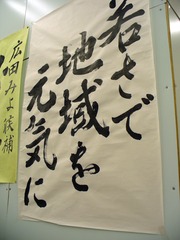 若さで
地域を
元気に
広田みよ候補